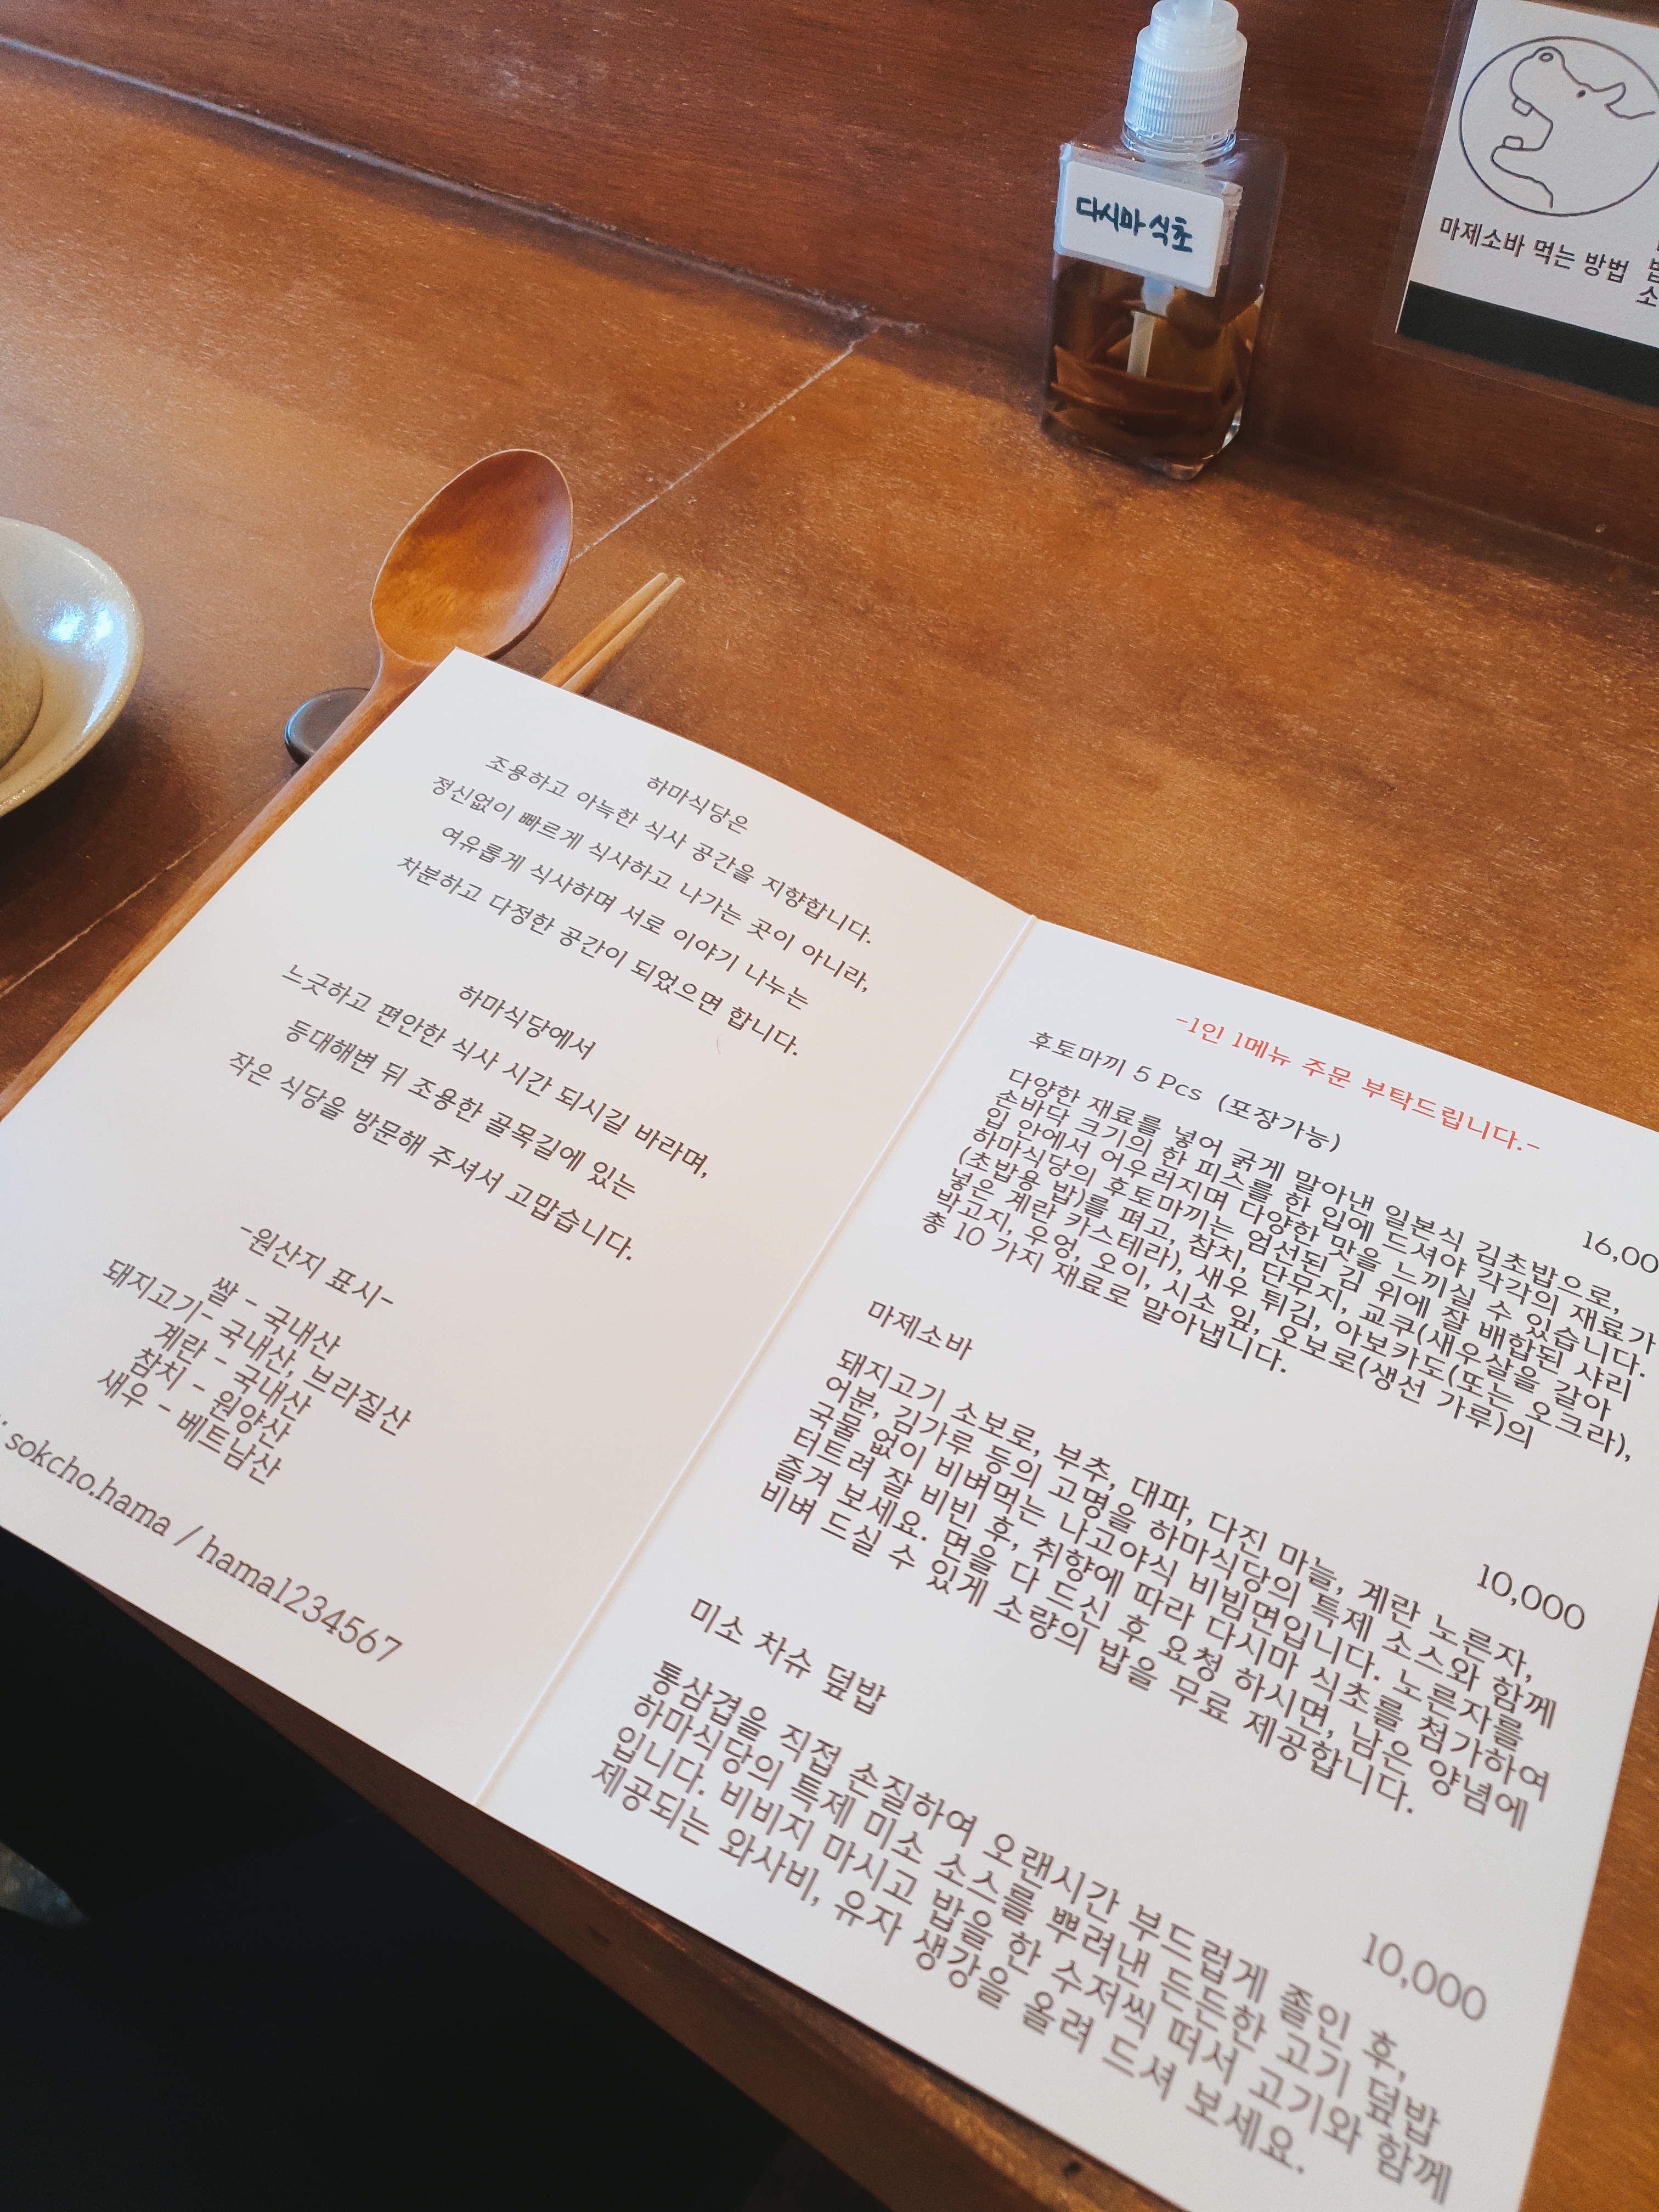 다시마 식초
마제소바 먹는 방법
하마식당은
조용하고 아늑한 식사 공간을 지향합니다.
정신없이 빠르게 식사하고 나가는 곳이 아니라,
여유롭게 식사하며 서로 이야기 나누는
차분하고 다정한 공간이 되었으면 합니다.
하마식당에서
느긋하고 편안한 식사 시간 되시길 바라며,
등대해변 뒤 조용한 골목길에 있는
작은 식당을 방문해 주셔서 고맙습니다.
-원산지 표시-
쌀 - 국내산
돼지고기- 국내산, 브라질산
계란 - 국내산
참치 - 원양산
새우 - 베트남산
sokcho.hama / hama1234567
-1인 1메뉴 주문 부탁드립니다.-
후토마끼 5 Pcs (포장가능)
16,00
다양한 재료를 넣어 굵게 말아낸 일본식 김초밥으로,
손바닥 크기의 한 피스를 한 입에 드셔야 각각의 재료가
입 안에서 어우러지며 다양한 맛을 느끼실 수 있습니다.
하마식당의 후토마끼는 엄선된 김 위에 잘 배합된 샤리
(초밥용 밥)를 펴고, 참치, 단무지, 교쿠(새우살을 갈아
넣은 계란 카스테라), 새우 튀김, 아보카도(또는 오크라),
박고지, 우엉, 오이, 시소 잎, 오보로(생선 가루)의
총 10 가지 재료로 말아냅니다.
마제소바
10,000
돼지고기 소보로, 부추, 대파, 다진 마늘, 계란 노른자,
어분, 김가루 등의 고명을 하마식당의 특제 소스와 함께
국물 없이 비벼먹는 나고야식 비빔면입니다. 노른자를
터트려 잘 비빈 후, 취향에 따라 다시마 식초를 첨가하여
즐겨 보세요. 면을 다 드신 후 요청 하시면, 남은 양념에
비벼 드실 수 있게 소량의 밥을 무료 제공합니다.
미소 차슈 덮밥
10,000
통삼겹을 직접 손질하여 오랜시간 부드럽게 졸인 후,
하마식당의 특제 미소 소스를 뿌려낸 든든한 고기 덮밥
입니다. 비비지 마시고 밥을 한 수저씩 떠서 고기와 함께
제공되는 와사비, 유자 생강을 올려 드셔 보세요.